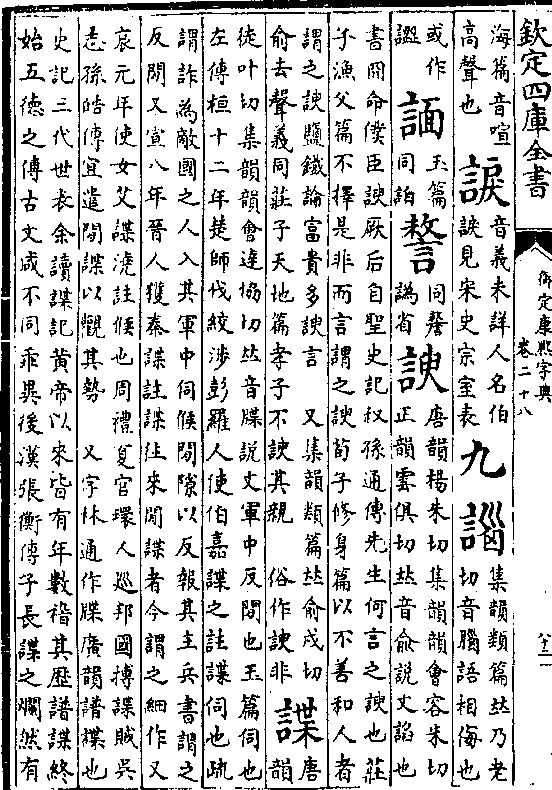 欽定四庫全書
御定康熙字典
卷二十八
海篇音喧
高聲也
䛾
音義未詳人名伯
䛾見宋史宗室表
九
𧫥
集韻類篇𠀤乃老
切音腦語相侮也
或作
謚
𧨁
玉篇
同詺
謷
同謷
譌省
諛
唐韻楊朱切集韻韻會容朱切
正韻雲俱切𠀤音俞說文諂也
書冏命僕臣諛厥后自聖史記叔孫通傳先生何言之諛也莊
子漁父篇不擇是非而言謂之諛荀子修身篇以不善和人者
謂之諛鹽鐵論富貴多諛言 又集韻類篇𠀤俞戍切
俞去聲義同莊子天地篇孝子不諛其親 俗作諛非
諜
唐
韻
徒叶切集韻韻會達協切𠀤音牒說文軍中反間也玉篇伺也
左傳桓十二年楚師伐絞涉彭羅人使伯嘉諜之註諜伺也疏
謂詐為敵國之人入其軍中伺候間隙以反報其主兵書謂之
反間又宣八年晉人獲秦諜註諜往來間諜者今謂之細作又
哀元年使女艾諜澆註候也周禮夏官環人巡邦國搏諜賊吳
志孫皓傳宜遣間諜以觀其勢 又字林通作牒廣韻譜諜也
史記三代世表余讀諜記黃帝以來皆有年數稽其歷譜諜終
始五德之傳古文咸不同乖異後漢張衡傳子長諜之爛然有